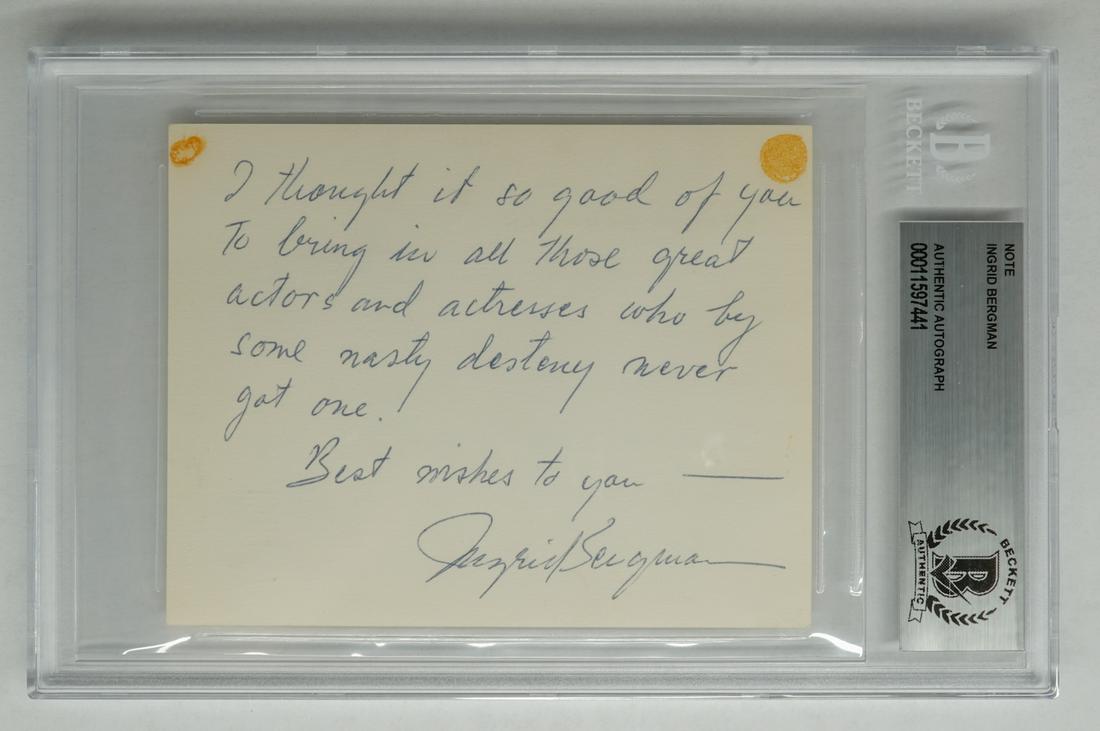 I thought it so good of you
to bring in all those great
actors and actresses who by
some nasty desteny never
got one.
Best wishes to you —
Ingrid Bergman
BECKETT
B
NOTE
INGRID BERGMAN
AUTHENTIC AUTOGRAPH
00011597441
BECKETT
B
AUTHENTIC